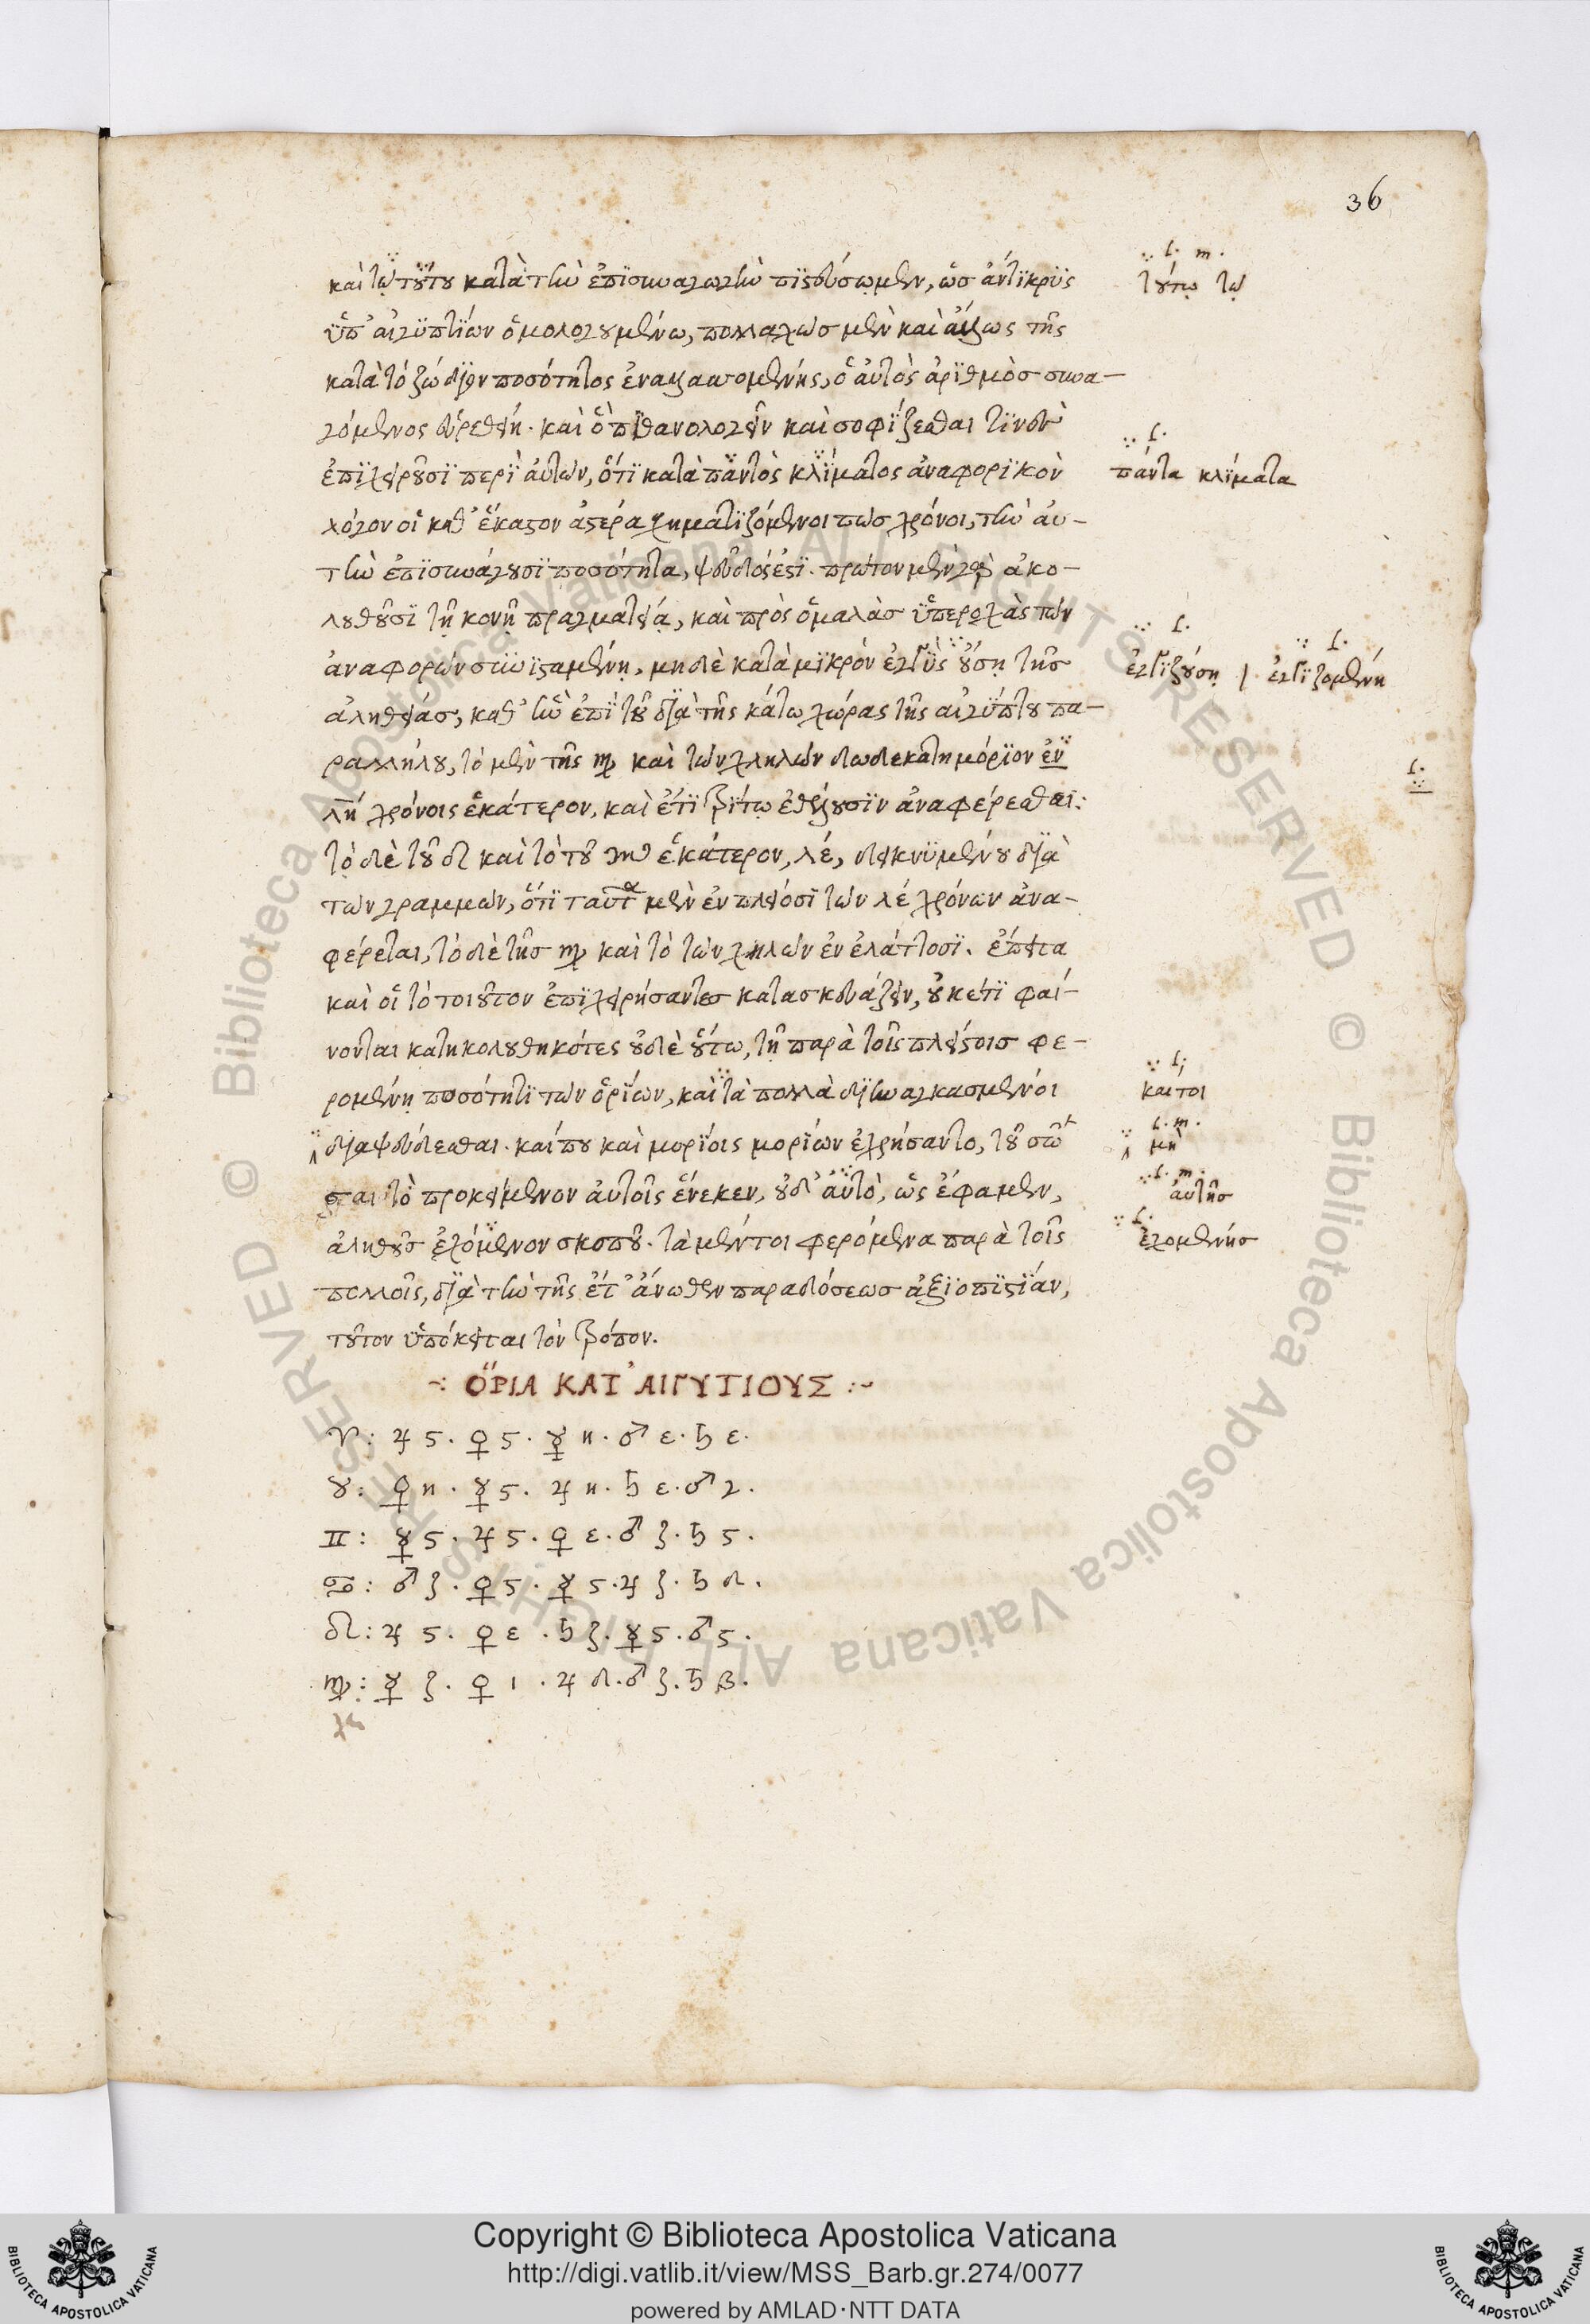 36
καὶ τῷ τούτου κατὰ τὴν ἐπισυναγωγὴν πιστεύσωμεν, ὡς ἄντικρυς
ὑπ' αἰγυπτίων ὁμολογουμένῳ, πολλαχῶς μὲν καὶ ἄλλως τῆς
κατὰ τὸ ζῴδιον ποσότητος ἐναλλασσομένης, ὁ αὐτὸς ἀριθμὸς συνα-
γόμενος εὑρεθείη. καὶ ὃ πιθανολογεῖν καὶ σοφίζεσθαι τινὲς
ἐπιχειροῦσι περὶ αὐτῶν, ὅτι κατὰ παντὸς κλίματος ἀναφορικὸν
λόγον οἱ καθ' ἕκαστον ἀστέρα σχηματιζόμενοι πως χρόνοι, τὴν αὐ-
τὴν ἐπισυνάγουσι ποσότητα, ψεῦδός ἐστι. πρῶτον μὲν γὰρ ἀκο-
λουθοῦσι τῇ κοινῇ πραγματείᾳ, καὶ πρὸς ὁμαλὰς ὑπεροχὰς τῶν
ἀναφορῶν συνισταμένῃ, μηδὲ κατὰ μικρὸν ἐγγὺς οὔσῃ τῆς
ἀληθείας, καθ' ἣν ἐπὶ τοῦ διὰ τῆς κάτω χώρας τῆς αἰγύπτου πα-
ραλλήλου, τὸ μὲν τῆς ♍ καὶ τῶν χηλῶν δωδεκατημόριον ἐν
λη χρόνοις ἑκάτερον, καὶ ἔτι τρίτῳ ἐθέλουσιν ἀναφέρεσθαι:
τὸ δὲ τοῦ ♌ καὶ τὸ τοῦ ♏ ἑκάτερον, λε, δεικνυμένου διὰ
τῶν γραμμῶν, ὅτι ταῦτα μὲν ἐν πλείοσι τῶν λε χρόνων ἀνα-
φέρεται, τὸ δὲ τῆς ♍ καὶ τὸ τῶν χηλῶν ἐν ἐλάττοσι. ἔπειτα
καὶ οἱ τὸ τοιοῦτον ἐπιχειρήσαντες κατασκευάζειν, οὐκέτι φαί-
νονται κατηκολουθηκότες οὐδὲ οὕτω, τῇ παρὰ τοῖς πλείστοις φε-
ρομένῃ ποσότητι τῶν ὁρίων, καὶ τὰ πολλὰ διηναγκασμένοι
διαψεύδεσθαι. καί που καὶ μορίοις μορίων ἐχρήσαντο, τοῦ σῶ
σαι τὸ προκείμενον αὐτοῖς ἕνεκεν, οὐδ' αὐτὸ, ὡς ἔφαμεν,
ἀληθοῦς ἐχόμενον σκοποῦ. τὰ μέντοι φερόμενα παρὰ τοῖς
πολλοῖς, διὰ τὴν τῆς ἔτ' ἄνωθεν παραδόσεως ἀξιοπιστίαν,
τοῦτον ὑπόκειται τὸν τρόπον.
ὍΡΙΑ ΚΑΤ' ΑΙΓΥΠΤΙΟΥΣ
♈: ♃ ς. ♀ ς. ☿ η. ♂ ε. ♄ ε.
♉: ♀ η. ☿ ς. ♃ η. ♄ ε. ♂ γ.
♊: ☿ ς. ♃ ς. ♀ ε. ♂ ζ. ♄ ς.
♋: ♂ ζ. ♀ ς. ☿ ς. ♃ ζ. ♄ δ.
♌: ♃ ς. ♀ ε. ♄ ζ. ☿ ς. ♂ ς.
♍: ☿ ζ. ♀ ι. ♃ δ. ♂ ζ. ♄ β.
∵ f. m.
τούτῳ τῷ
∵ f.
πάντα κλίματα
∵ f. ∵ f.
ἐγγιζούσῃ / ἐγγιζομένη
f.
∵ f;
καιτοι
∵ f. m.
μὴ
∵ f. m.
αὐτῆς
∵ f.
ἐχομένης
© Biblioteca Apostolica Vaticana ALL RIGHTS RESERVED
Copyright © Biblioteca Apostolica Vaticana
http://digi.vatlib.it/view/MSS_Barb.gr.274/0077
powered by AMLAD·NTT DATA
BIBLIOTECA APOSTOLICA VATICANA
BIBLIOTECA APOSTOLICA VATICANA